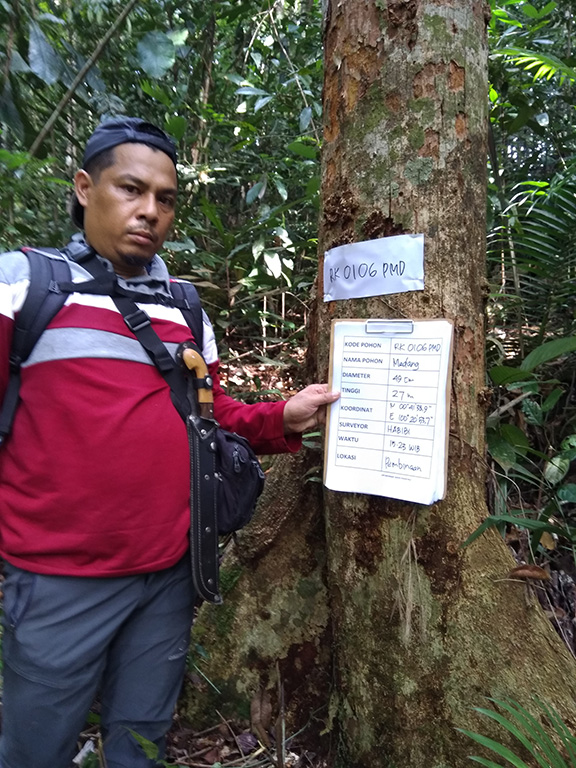 RK 0106 PMD
KODE POHON RK 0106 PMD
NAMA POHON Madang
DIAMETER 49 cm
TINGGI 27 m
KOORDINAT N 00°41'58,9"
E 100°20'53,7"
SURVEYOR HABIBI
WAKTU 10:23 WIB
LOKASI Pembinaan